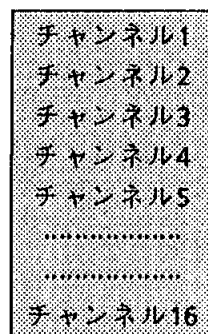 チャンネル1
チャンネル2
チャンネル3
チャンネル4
チャンネル5
..................
..................
チャンネル16